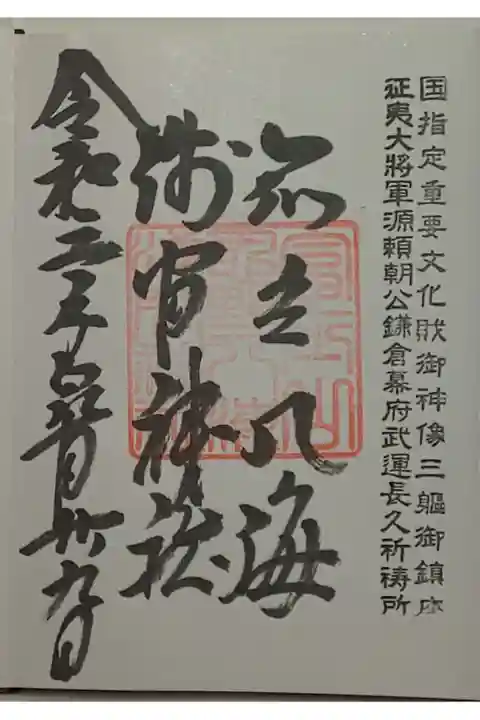 国指定重要文化財御神像三軀御鎮座
征夷大將軍源頼朝公鎌倉幕府武運長久祈祷所
冨士八海
浅間神社
令和二年 月廿九日